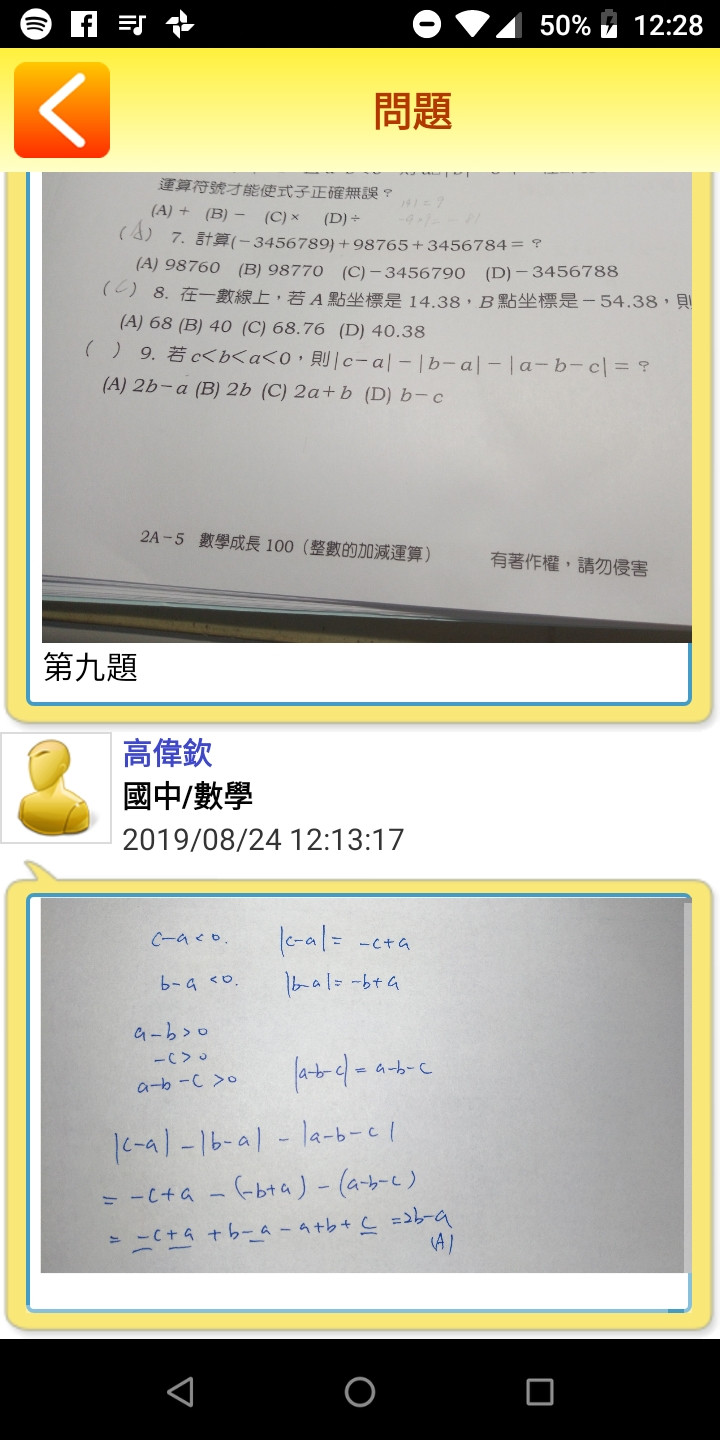 50% 12:28
問題
運算符號才能使式子正確無誤?
(A) + (B) − (C) × (D) ÷
7. 計算(−3456789)+98765+3456784=?
(A) 98760 (B) 98770 (C)−3456790 (D)−3456788
8. 在一數線上,若 A 點坐標是 14.38,B 點坐標是−54.38,則
(A) 68 (B) 40 (C) 68.76 (D) 40.38
( ) 9. 若 c<b<a<0,則|c−a|−|b−a|−|a−b−c|=?
(A) 2b−a (B) 2b (C) 2a+b (D) b−c
2A-5 數學成長 100(整數的加減運算) 有著作權,請勿侵害
第九題
高偉欽
國中/數學
2019/08/24 12:13:17
c-a<0. |c-a|= -c+a
b-a<0. |b-a|=-b+a
a-b>0
-c>0
a-b-c>0 |a-b-c|=a-b-c
|c-a|-|b-a|-|a-b-c|
= -c+a-(-b+a)-(a-b-c)
= -c+a+b-a-a+b+c=2b-a
(A)